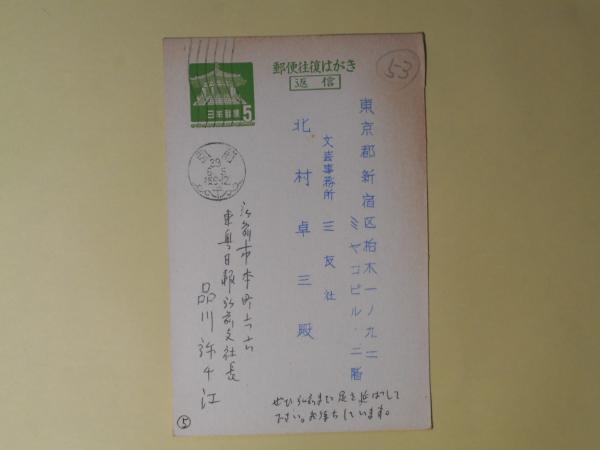 郵便往復はがき
返信
53
5
日本郵便
弘前
39
東京都新宿区柏木一ノ九二
ミヤコビル・二階
文芸事務所 三友社
北村卓三殿
弘前市本町六六
東奥日報弘前支社長
品川弥千江
ぜひ弘前まで足を延ばして
下さい。お待ちしています。
5